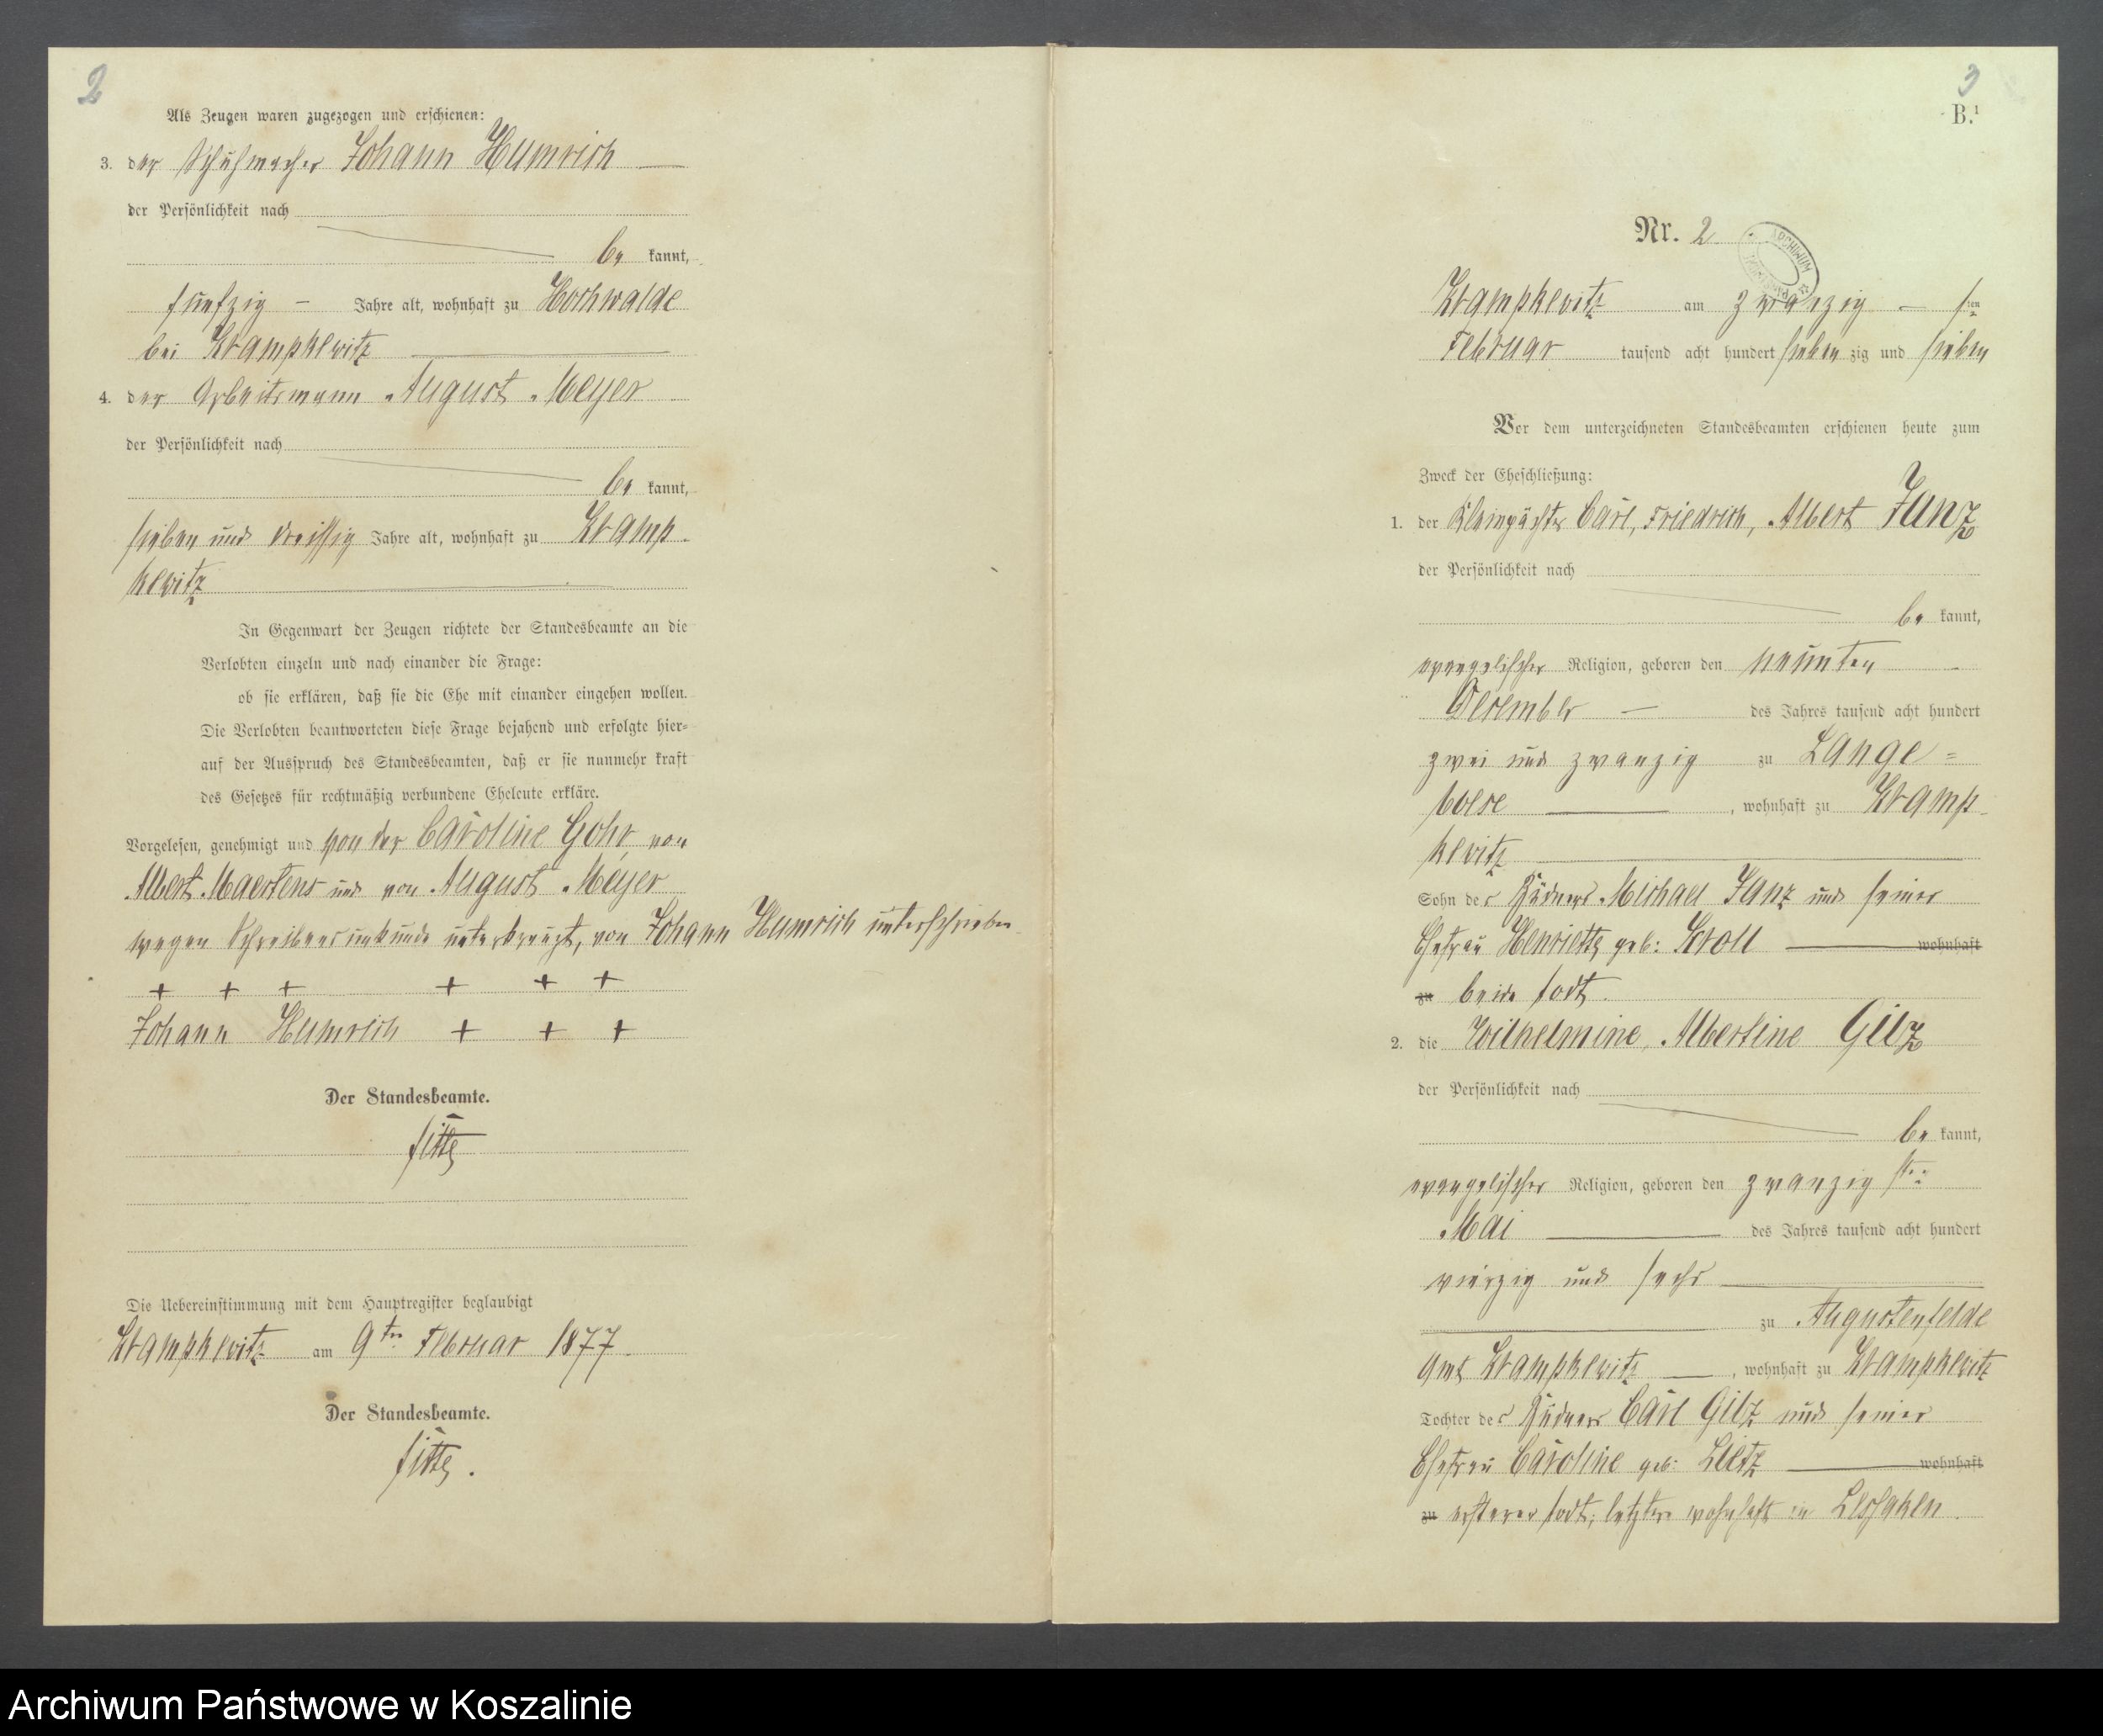 2
Als Zeugen waren zugezogen und erschienen:
3. der Schuhmacher Johann Humrich
der Persönlichkeit nach
be kannt,
fünfzig – Jahre alt, wohnhaft zu Hochwalde
bei Krampkewitz
4. der Arbeitsmann August Meyer
der Persönlichkeit nach
be kannt,
sieben und dreissig Jahre alt, wohnhaft zu Kramp-
kewitz
In Gegenwart der Zeugen richtete der Standesbeamte an die
Verlobten einzeln und nach einander die Frage:
ob sie erklären, daß sie die Ehe mit einander eingehen wollen.
Die Verlobten beantworteten diese Frage bejahend und erfolgte hier=
auf der Ausspruch des Standesbeamten, daß er sie nunmehr kraft
des Gesetzes für rechtmäßig verbundene Eheleute erkläre.
Vorgelesen, genehmigt und von der Caroline Gohr, von
Albert Maertens und von August Meyer
wegen Schreibensunkunde unterkreuzt, von Johann Humrich unterschrieben
+ + + + + +
Johann Humrich + + +
Der Standesbeamte.
Die Uebereinstimmung mit dem Hauptregister beglaubigt
Krampkewitz am 9ten Februar 1877.
Der Standesbeamte.
3
B.1
Nr. 2
ARCHIWUM
Krampkewitz am zwanzig – sten
Februar tausend acht hundert sieben zig und sieben
Vor dem unterzeichneten Standesbeamten erschienen heute zum
Zweck der Eheschließung:
1. der Kleinpächter Carl, Friedrich, Albert Janz
der Persönlichkeit nach
be kannt,
evangelischer Religion, geboren den neunten
Dezember – des Jahres tausend acht hundert
zwei und zwanzig zu Lange=
böse, wohnhaft zu Kramp-
kewitz
Sohn des Büdners Michael Janz und seiner
Ehefrau Henriette geb: Kroll wohnhaft
zu beide todt.
2. die Wilhelmine, Albertine Gilz
der Persönlichkeit nach
be kannt,
evangelischer Religion, geboren den zwanzig sten
Mai des Jahres tausend acht hundert
vierzig und sechs
zu Augustenfelde
Amt Krampkewitz, wohnhaft zu Krampkewitz
Tochter des Büdners Carl Gilz und seiner
Ehefrau Caroline geb: Lietz wohnhaft
zu ersterer todt, letztere wohnhaft in
Archiwum Państwowe w Koszalinie